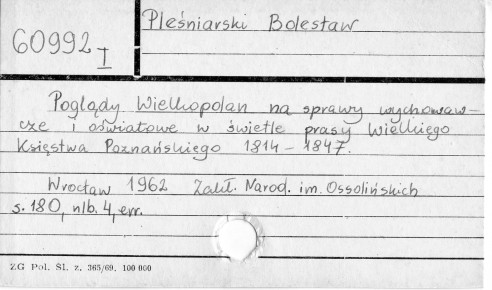 Pleśniarski Bolesław
60992 I
Poglądy Wielkopolan na sprawy wychowaw-
cze i oświatowe w świetle prasy Wielkiego
Księstwa Poznańskiego 1814-1847.
Wrocław 1962 Zakł. Narod. im. Ossolińskich
s. 180, nlb. 4, err.
ZG Pol. Śl. z. 365/69. 100 000